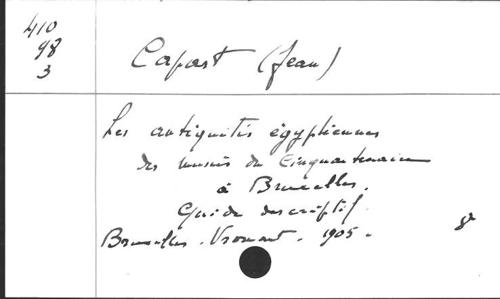 410
98
3
Capart (Jean)
Les antiquités égyptiennes
des musées du Cinquantenaire
à Bruxelles.
Guide descriptif.
Bruxelles. Vromant. 1905.
8º